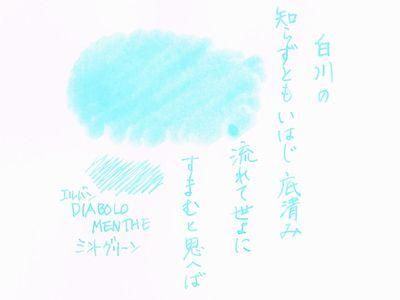 白川の
知らずともいはじ底清み
流れて世よに
すまむと思へば
エルバン
DIABOLO
MENTHE
ミントグリーン